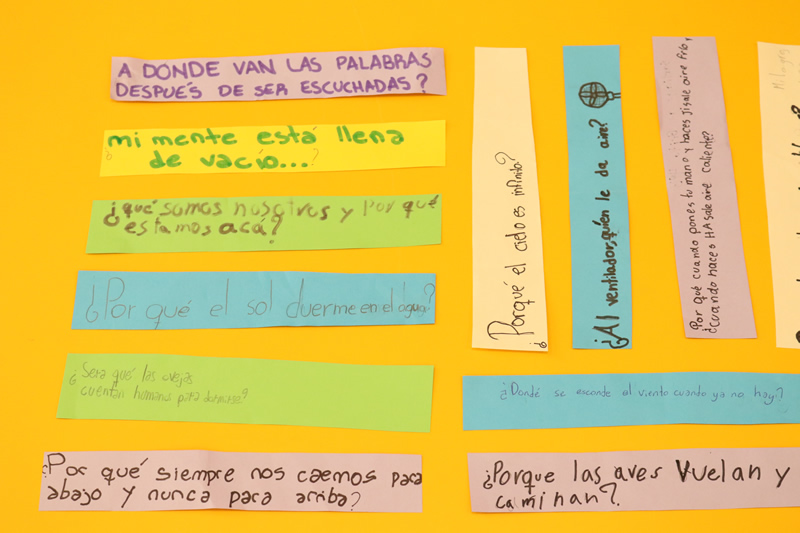 A DONDE VAN LAS PALABRAS
DESPUÉS DE SER ESCUCHADAS?
mi mente está llena
de vacío...?
¿qué somos nosotros y por qué
estamos acá?
¿Por qué el sol duerme en el agua?
¿Sera qué las ovejas
cuentan humanos para dormirse?
¿Por qué siempre nos caemos para
abajo y nunca para arriba?
¿Porqué el cielo es infinito?
¿Al ventilador, quién le da aire?
Por qué cuando pones tu mano y haces
sale aire frío
¿cuando haces HA sale aire caliente?
¿Dondé se esconde el viento cuando ya no hay?
¿Porque las aves vuelan y
caminan?